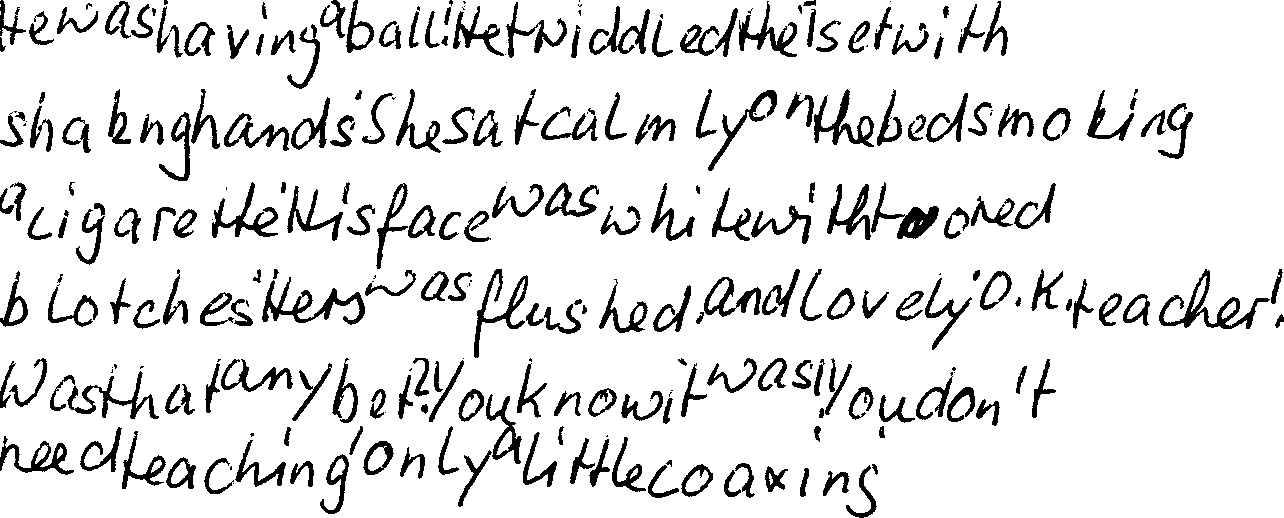 He was having a ball! He twiddled the T set with
shakng hands. She sat calmly on the bed smoking
a cigarette. His face was white with two red
blotches. Hers was flushed. and lovely. O.K. teacher!
Was that any bet? You know it was!! You don't
need teaching only a little coaxing.